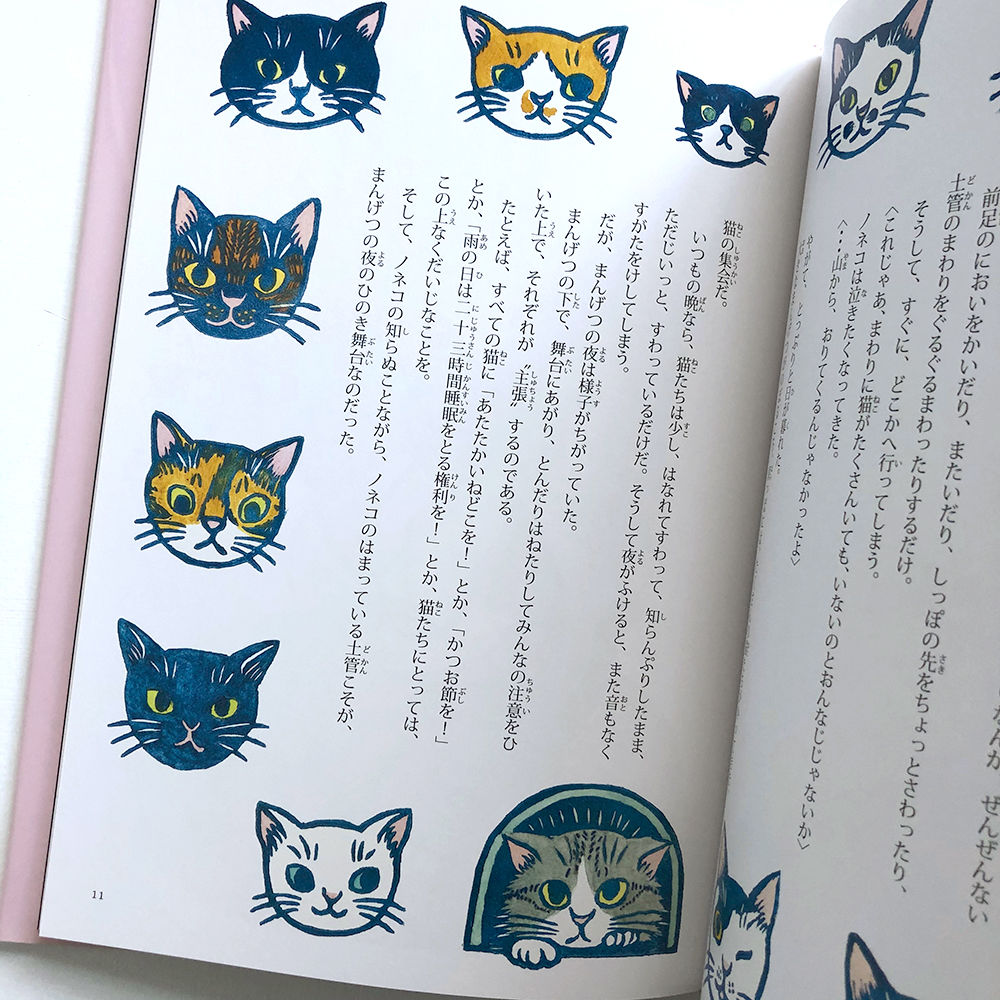 ぜんぜんない
前足のにおいをかいだり、またいだり、しっぽの先をちょっとさわったり、
土管のまわりをぐるぐるまわったりするだけ。
そうして、すぐに、どこかへ行ってしまう。
〈これじゃあ、まわりに猫がたくさんいても、いないのとおんなじじゃないか〉
ノネコは泣きたくなってきた。
〈‥山から、おりてくるんじゃなかったよ〉
やがて、とっぷりと日が暮れた。
猫の集会だ。
いつもの晩なら、猫たちは少し、はなれてすわって、知らんぷりしたまま、
ただじいっと、すわっているだけだ。そうして夜がふけると、また音もなく
すがたをけしてしまう。
だが、まんげつの夜は様子がちがっていた。
まんげつの下で、舞台にあがり、とんだりはねたりしてみんなの注意をひ
いた上で、それぞれが〝主張〟するのである。
たとえば、すべての猫に「あたたかいねどこを！」とか、「かつお節を！」
とか、「雨の日は二十三時間睡眠をとる権利を！」とか、猫たちにとっては、
この上なくだいじなことを。
そして、ノネコの知らぬことながら、ノネコのはまっている土管こそが、
まんげつの夜のひのき舞台なのだった。
11